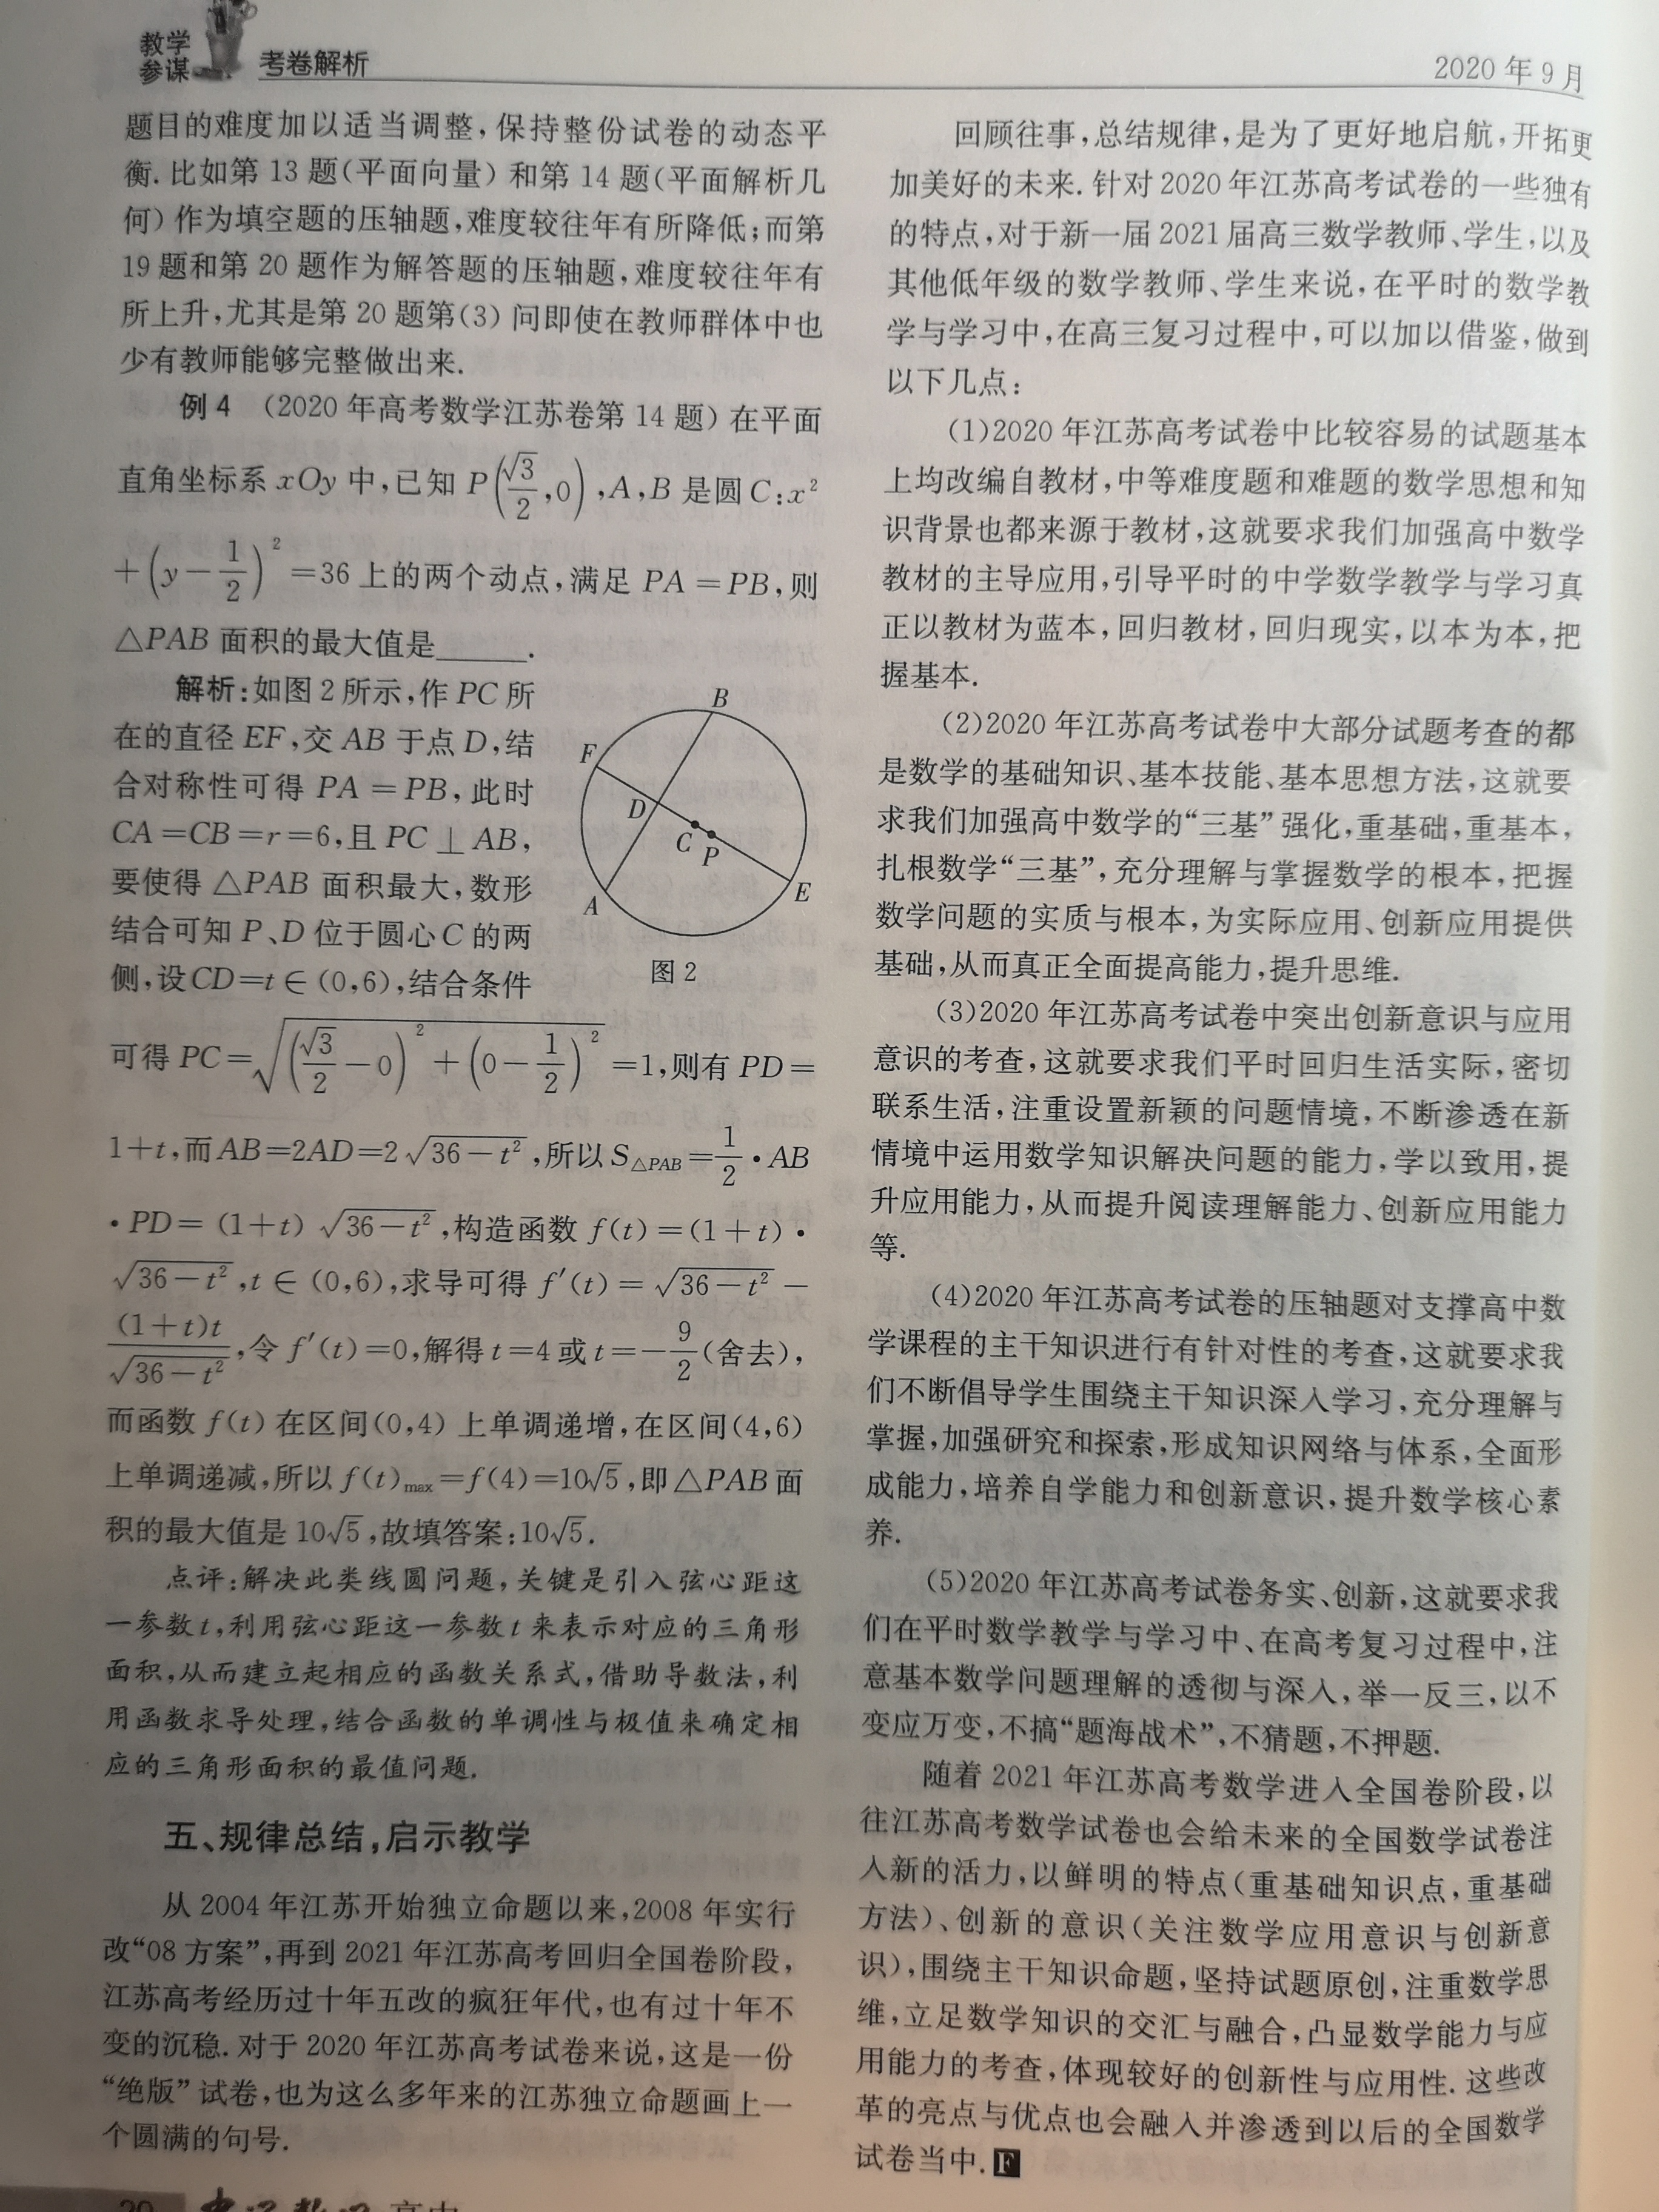 教学
参谋
考卷解析
2020年9月
题目的难度加以适当调整,保持整份试卷的动态平
衡.比如第13题(平面向量)和第14题(平面解析几
何)作为填空题的压轴题,难度较往年有所降低;而第
19题和第20题作为解答题的压轴题,难度较往年有
所上升,尤其是第20题第(3)问即使在教师群体中也
少有教师能够完整做出来.
例4 (2020年高考数学江苏卷第14题)在平面
直角坐标系xOy中,已知P(√3/2,0),A,B是圆C:x²
+(y-1/2)²=36上的两个动点,满足PA=PB,则
△PAB面积的最大值是______.
解析:如图2所示,作PC所
在的直径EF,交AB于点D,结
合对称性可得PA=PB,此时
CA=CB=r=6,且PC⊥AB,
要使得△PAB面积最大,数形
结合可知P、D位于圆心C的两
侧,设CD=t∈(0,6),结合条件
B
F
D
C
P
A
E
图2
可得PC=√((√3/2-0)²+(0-1/2)²)=1,则有PD=
1+t,而AB=2AD=2√(36-t²),所以S△PAB=1/2·AB
·PD=(1+t)√(36-t²),构造函数f(t)=(1+t)·
√(36-t²),t∈(0,6),求导可得f′(t)=√(36-t²)-
(1+t)t/√(36-t²),令f′(t)=0,解得t=4或t=-9/2(舍去),
而函数f(t)在区间(0,4)上单调递增,在区间(4,6)
上单调递减,所以f(t)max=f(4)=10√5,即△PAB面
积的最大值是10√5,故填答案:10√5.
点评:解决此类线圆问题,关键是引入弦心距这
一参数t,利用弦心距这一参数t来表示对应的三角形
面积,从而建立起相应的函数关系式,借助导数法,利
用函数求导处理,结合函数的单调性与极值来确定相
应的三角形面积的最值问题.
五、规律总结,启示教学
从2004年江苏开始独立命题以来,2008年实行
改“08方案”,再到2021年江苏高考回归全国卷阶段,
江苏高考经历过十年五改的疯狂年代,也有过十年不
变的沉稳.对于2020年江苏高考试卷来说,这是一份
“绝版”试卷,也为这么多年来的江苏独立命题画上一
个圆满的句号.
回顾往事,总结规律,是为了更好地启航,开拓更
加美好的未来.针对2020年江苏高考试卷的一些独有
的特点,对于新一届2021届高三数学教师、学生,以及
其他低年级的数学教师、学生来说,在平时的数学教
学与学习中,在高三复习过程中,可以加以借鉴,做到
以下几点:
(1)2020年江苏高考试卷中比较容易的试题基本
上均改编自教材,中等难度题和难题的数学思想和知
识背景也都来源于教材,这就要求我们加强高中数学
教材的主导应用,引导平时的中学数学教学与学习真
正以教材为蓝本,回归教材,回归现实,以本为本,把
握基本.
(2)2020年江苏高考试卷中大部分试题考查的都
是数学的基础知识、基本技能、基本思想方法,这就要
求我们加强高中数学的“三基”强化,重基础,重基本,
扎根数学“三基”,充分理解与掌握数学的根本,把握
数学问题的实质与根本,为实际应用、创新应用提供
基础,从而真正全面提高能力,提升思维.
(3)2020年江苏高考试卷中突出创新意识与应用
意识的考查,这就要求我们平时回归生活实际,密切
联系生活,注重设置新颖的问题情境,不断渗透在新
情境中运用数学知识解决问题的能力,学以致用,提
升应用能力,从而提升阅读理解能力、创新应用能力
等.
(4)2020年江苏高考试卷的压轴题对支撑高中数
学课程的主干知识进行有针对性的考查,这就要求我
们不断倡导学生围绕主干知识深入学习,充分理解与
掌握,加强研究和探索,形成知识网络与体系,全面形
成能力,培养自学能力和创新意识,提升数学核心素
养.
(5)2020年江苏高考试卷务实、创新,这就要求我
们在平时数学教学与学习中、在高考复习过程中,注
意基本数学问题理解的透彻与深入,举一反三,以不
变应万变,不搞“题海战术”,不猜题,不押题.
随着2021年江苏高考数学进入全国卷阶段,以
往江苏高考数学试卷也会给未来的全国数学试卷注
入新的活力,以鲜明的特点(重基础知识点,重基础
方法)、创新的意识(关注数学应用意识与创新意
识),围绕主干知识命题,坚持试题原创,注重数学思
维,立足数学知识的交汇与融合,凸显数学能力与应
用能力的考查,体现较好的创新性与应用性.这些改
革的亮点与优点也会融入并渗透到以后的全国数学
试卷当中.F